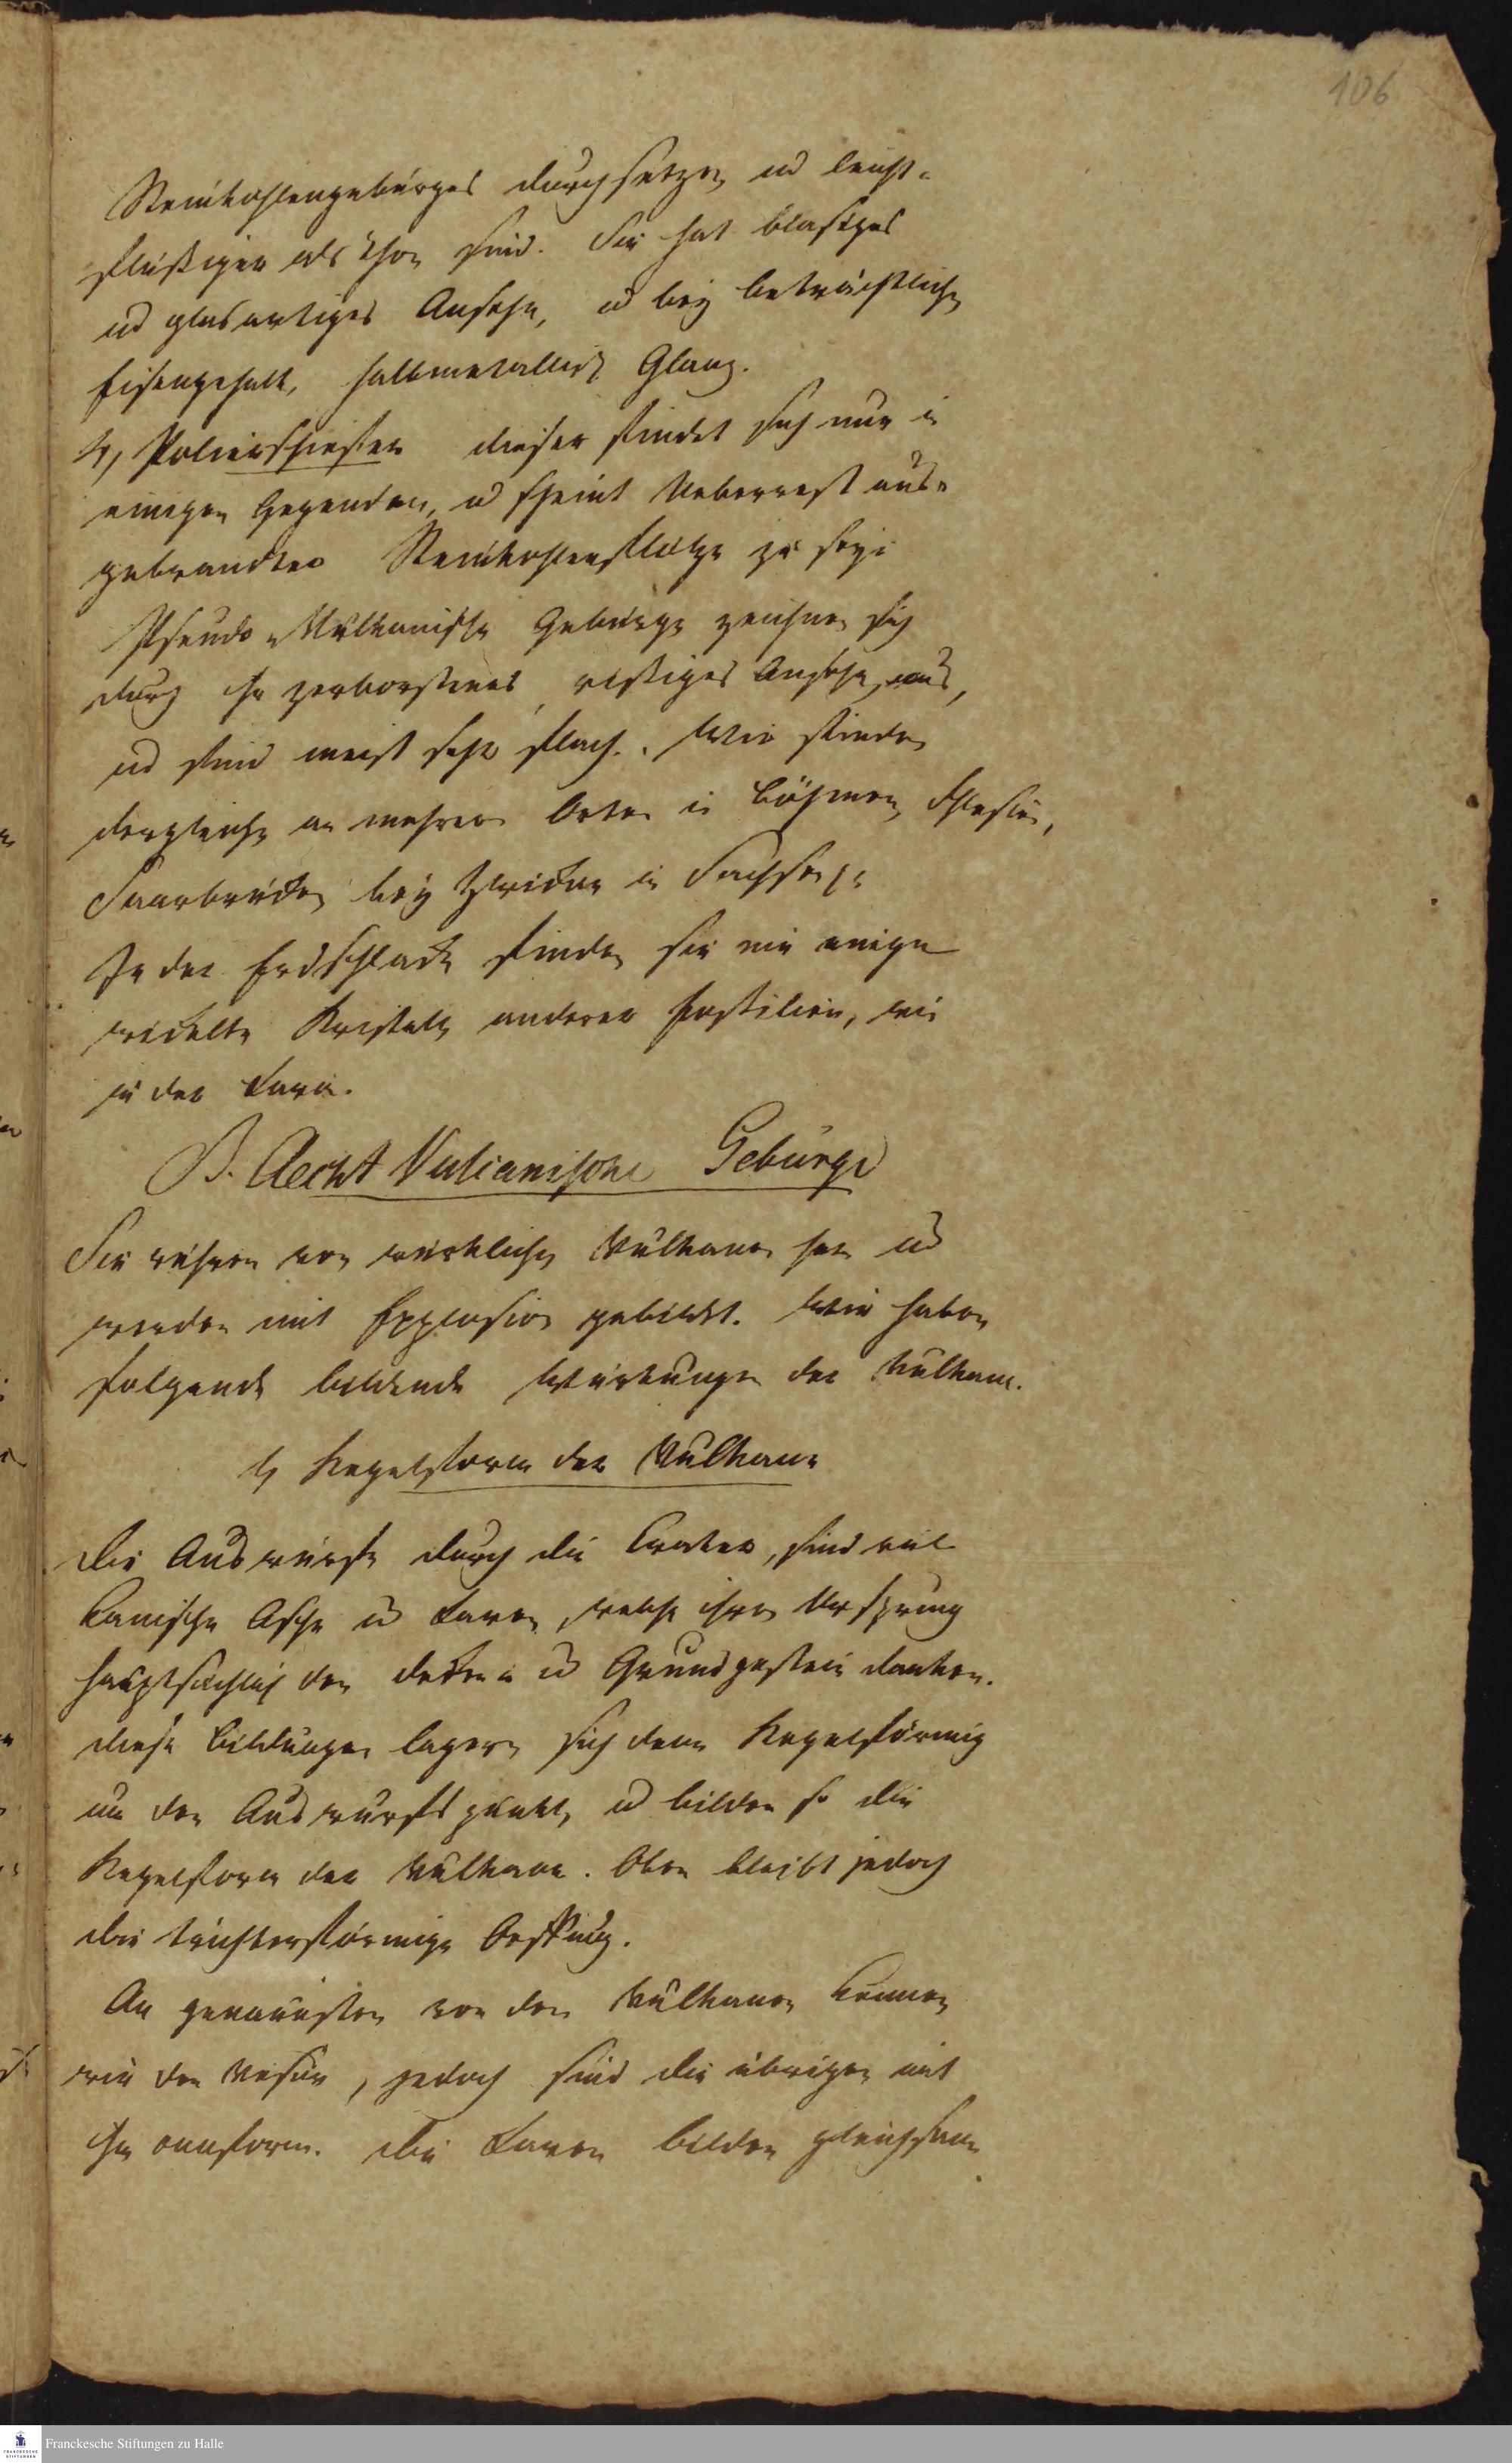 106
Steinkohlengebürges durchsetzen ud leicht-
flüßiger als Thon sind. Sie hat blasiges
ud glasartiges Ansehn, ud bey beträchtlichen
Eisengehalt, halbmetallisch Glanz.
4, Polierschiefer dieser findet sich nur in
einigen Gegenden, ud scheint Ueberrest aus-
gebrandter Steinkohlenflötze zu seyn
Pseudo-Vulkanische Gebürge zeichnen sich
durch ihr zerborstenes, rissiges Ansehn aus,
ud sind meist sehr flach. Wir finden
dergleichen an mehrern Orten in Böhmen, Schlesien,
Saarbrücken bey Zwickau in Sachsen
In der Erdschlacke finden sie nie einge-
wickelte Kristalle anderer Fossilien, wie
in der Lava.
B. Aecht Vulcanische Gebürge
Sie rühren von würklichen Vulkanen her ud
werden mit Explosion gebildet. Wir haben
folgende bildende Würkungen der Vulkane.
1, Kegelform der Vulkane
Die Auswürfe durch die Crater, sind vul-
canische Asche ud Laven, welche ihren Ursprung
hauptsächlich den Decken- ud Grundgestein danken.
diese Bildungen lagern sich denn Kegelförmig
um den Auswurfspunkt, ud bilden so die
Kegelform der Vulkane. Oben bleibt jedoch
die trichterförmige Oeffnung.
Am genauesten von den Vulkanen kennen
wir den Vesuv, jedoch sind die übrigen mit
ihm conform. Die Laven bilden gleichsam
Franckesche Stiftungen zu Halle